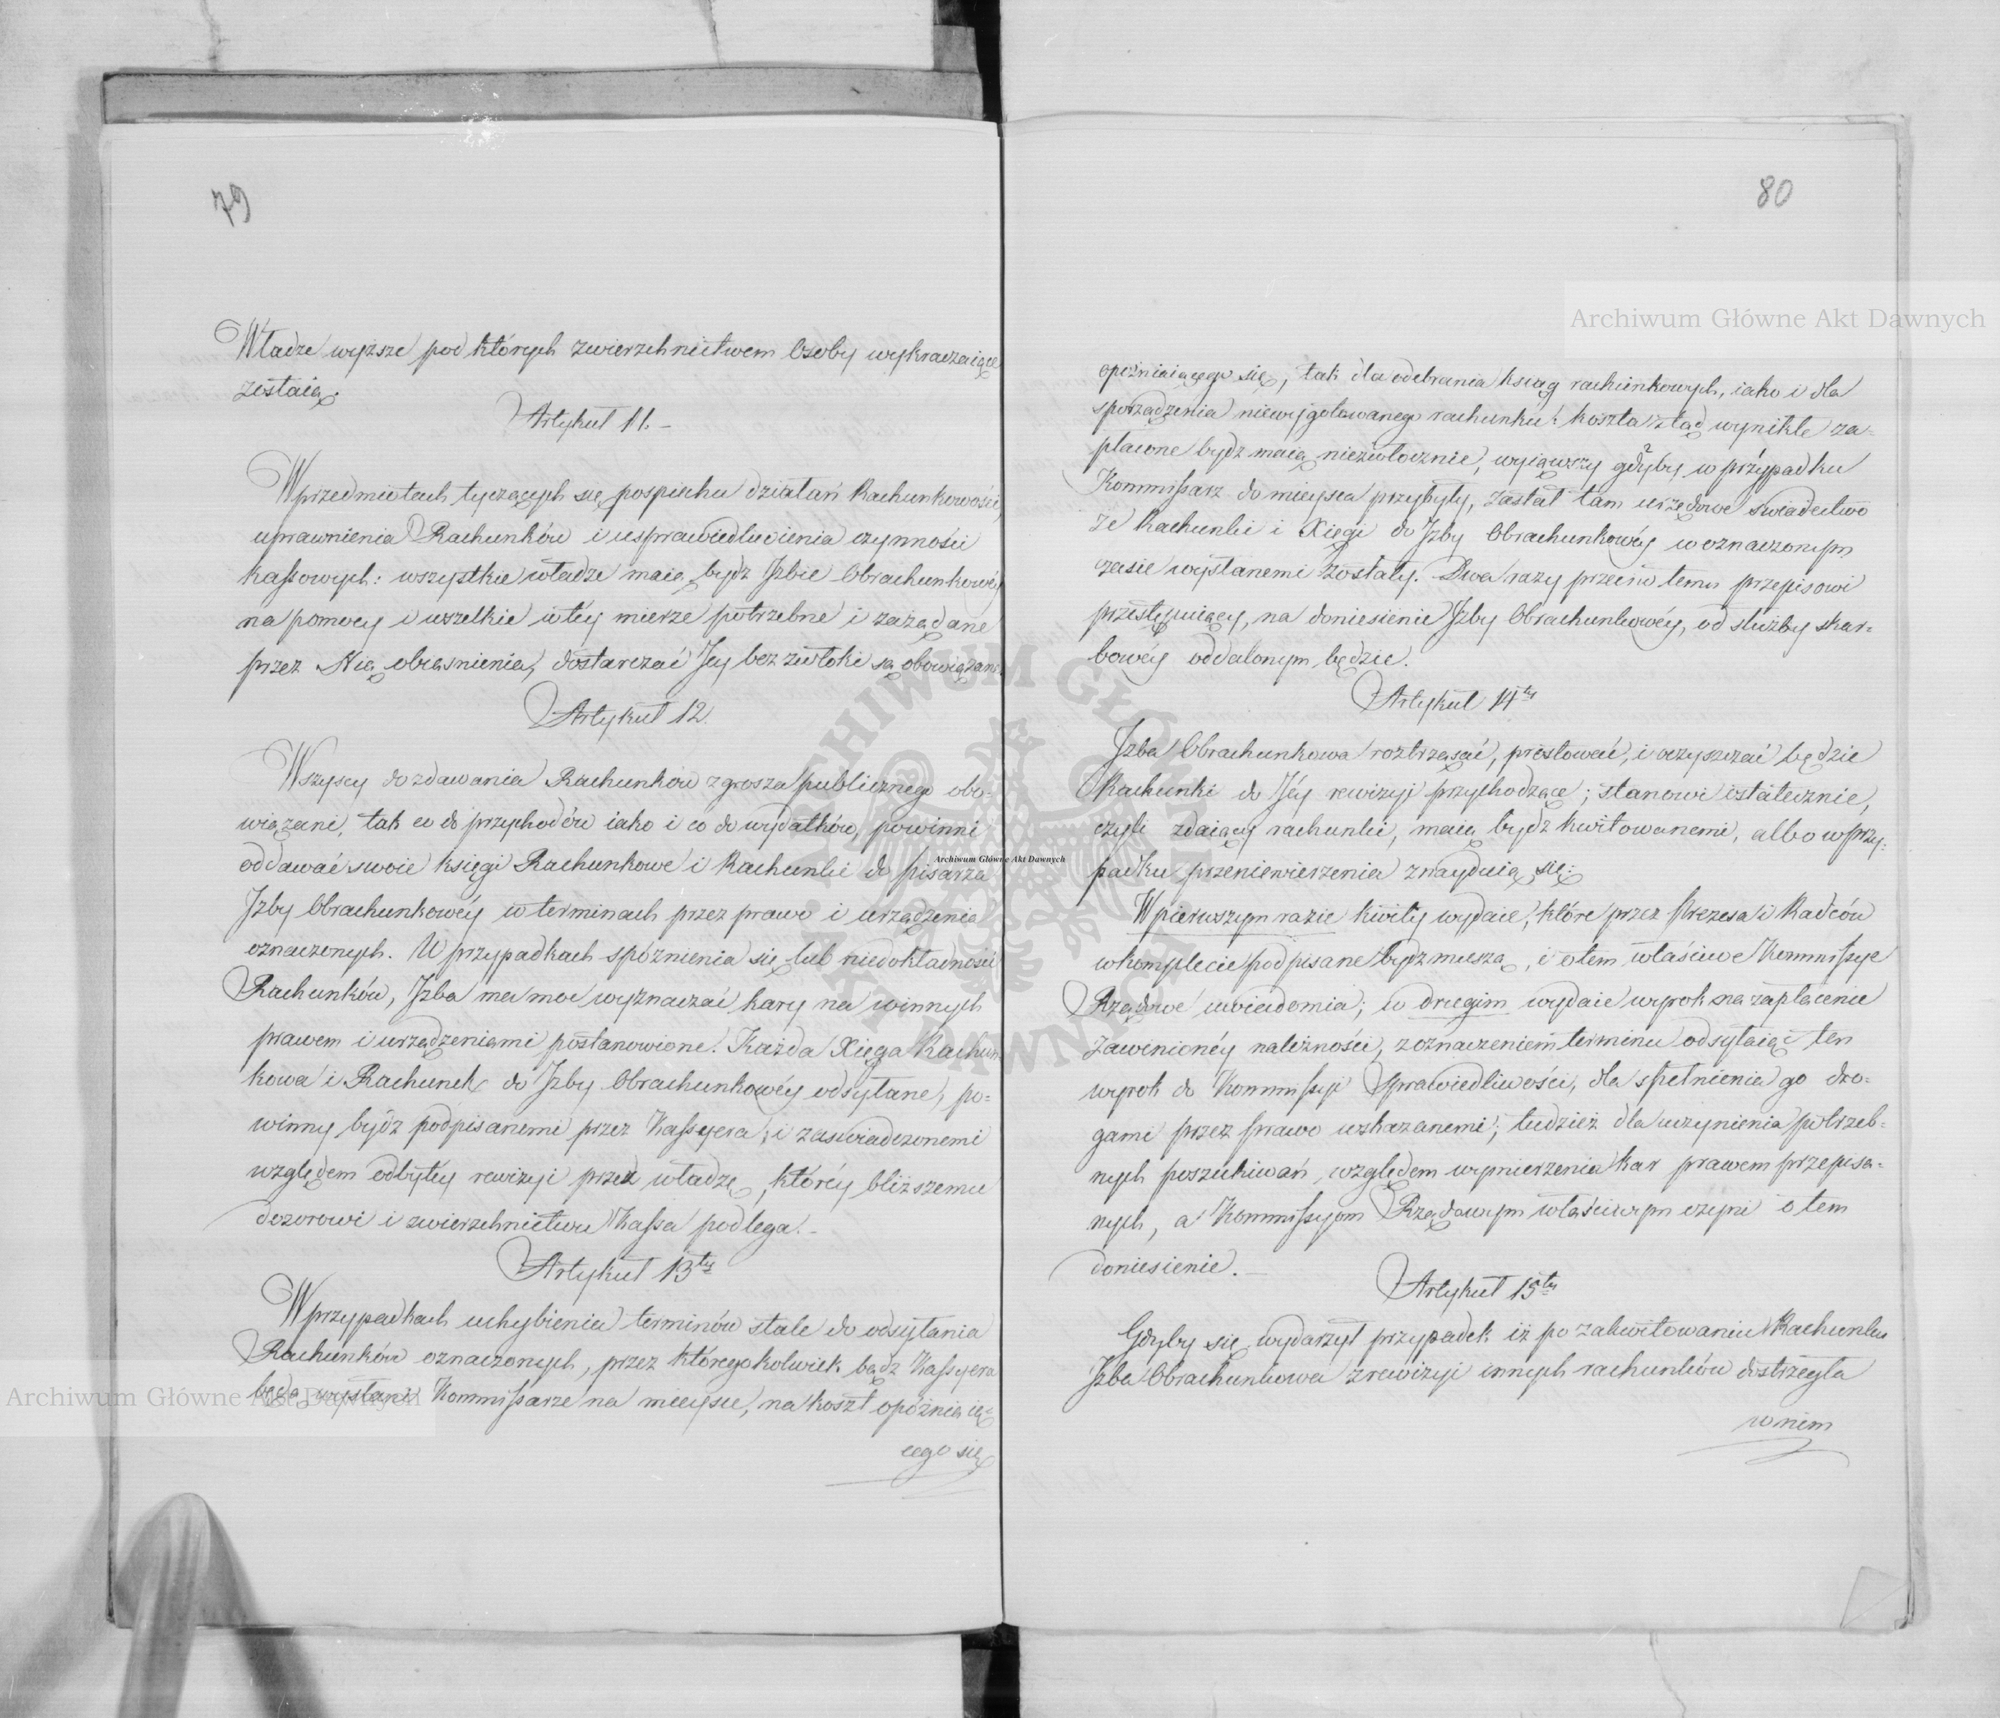 79
Władze wyższe pod których zwierzchnictwem Osoby wykraczaiące
zostaią.
Artykuł 11.–
W przedmiotach tyczących się pospiechu działań Rachunkowości,
uprawnienia Rachunków i usprawiedliwienia czynności
kassowych: wszystkie władze maią bydź Izbie Obrachunkowéy
na pomocy i wszelkie w téy mierze potrzebne i zażądane
przez Nią obiasnienia, dostarczać Jey bez zwłoki są obowiązane.
Artykuł 12.
Wszyscy do zdawania Rachunków z grosza publicznego obo-
wiązani, tak co do przychodów iako i co do wydatków, powinni
oddawać swoie księgi Rachunkowe i Rachunki do pisarza
Izby Obrachunkowéy w terminach przez prawo i urządzenia
oznaczonych. W przypadkach spóznienia się lub niedokładności
Rachunków, Izba ma moc wyznaczać kary na winnych
prawem i urządzeniami postanowione. Każda Xięga Rachun-
kowa i Rachunek do Izby Obrachunkowéy odsyłane, po-
winny bydź podpisanemi przez Kassyera, i zaswiadczonemi
względem odbytéy rewizyi przed władzę, któréy bliższemu
dozorowi i zwierzchnictwu Kassa podlega.–
Artykuł 13ty
W przypadkach uchybienia terminów stale do odsyłania
Rachunków oznaczonych, przez któregokolwiek bądz Kassyera
będą wysłani Kommissarze na mieysce, na koszt opóżniaią-
cego się
80
opóżniaiącego się, tak dla odebrania ksiąg rachunkowych, iako i dla
sporządzenia niewygotowanego rachunku: koszta ztąd wynikłe za-
płacone bydz maią niezwłocznie, wyiąwszy gdyby w przypadku
Kommissarz do mieysca przybyły, zastał tam urzędowe swiadectwo
że Rachunki i Xięgi do Izby Obrachunkowéy w oznaczonym
czasie wysłanemi zostały. Dwa razy przeciw temu przepisowi
przestępuiący, na doniesienie Izby Obrachunkowéy, od służby skar-
bowéy oddalonym będzie.
Artykuł 14ty
Izba Obrachunkowa roztrząsać, prostować, i oczyszczać będzie
Rachunki do Jéy rewizyi przychodzące; stanowi ostatecznie,
czyli zdaiący rachunki, maią bydź kwitowanemi, albo w przy-
padku przeniewierzenia znayduią się:
W pierwszym razie kwity wydaie, które przez Prezesa i Radców
w komplecie podpisane bydz muszą, i o tem właściwe Kommissye
Rządowe uwiadomia; w drugim wydaie wyrok na zapłacenie
zawinionéy należności, z oznaczeniem terminu odsyłaiąc ten
wyrok do Kommissyi Sprawiedliwości, dla spełnienia go dro-
gami przez prawo wskazanemi; tudzież dla uczynienia potrzeb-
nych poszukiwań, względem wymierzenia kar prawem przepisa-
nych, a Kommissyom Rządowym właściwym czyni o tem
doniesienie.–
Artykuł 15ty
Gdyby się wydarzył przypadek iż po zakwitowaniu Rachunku
Izba Obrachunkowa z rewizyi innych rachunków dostrzegła
w nim
Archiwum Główne Akt Dawnych
Archiwum Główne Akt Dawnych
Archiwum Główne Akt Dawnych
ARCHIWUM GŁÓWNE AKT DAWNYCH